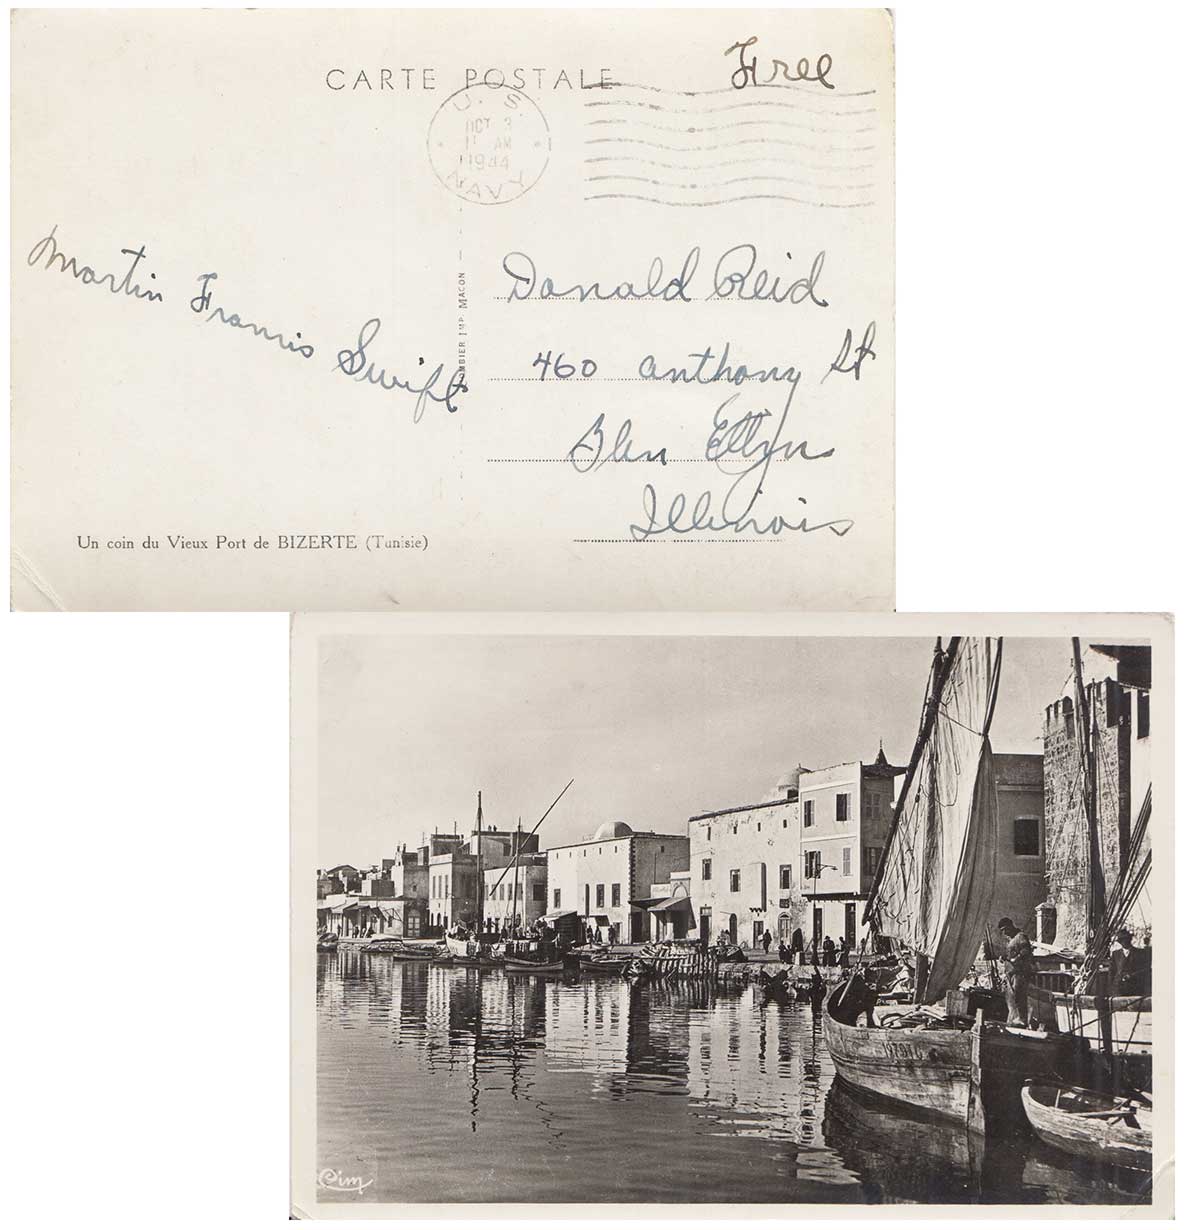 CARTE POSTALE
Free
U. S.
OCT 3
11 AM
1944
NAVY
Martin Francis Swift
IMP. MACON
Donald Reid
460 Anthony St
Glen Ellyn
Illinois
Un coin du Vieux Port de BIZERTE (Tunisie)
Cim